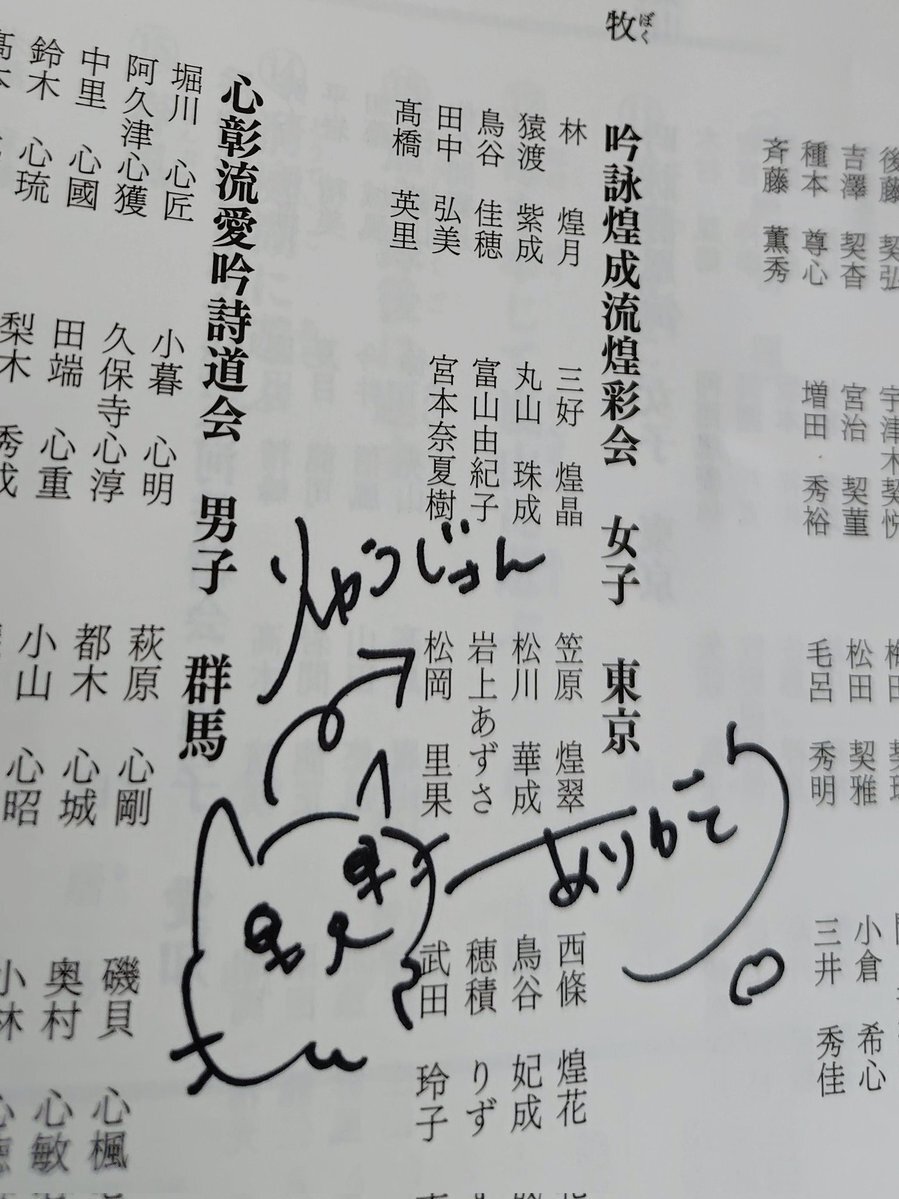 後藤 契弘 宇津木契悦
吉澤 契杳 宮治 契菫 松田 契雅 小倉 希心
種本 尊心 増田 秀裕 毛呂 秀明 三井 秀佳
斉藤 薫秀
牧 ぼく
吟詠煌成流煌彩会 女子 東京
林 煌月 三好 煌晶 笠原 煌翠 西條 煌花
猿渡 紫成 丸山 珠成 松川 華成 鳥谷 妃成
鳥谷 佳穂 富山由紀子 岩上あずさ 穂積 りず
田中 弘美 宮本奈夏樹 松岡 里果 武田 玲子
髙橋 英里
心彰流愛吟詩道会 男子 群馬
堀川 心匠 小暮 心明 萩原 心剛 磯貝 心楓
阿久津心獲 久保寺心淳 都木 心城 奥村 心敏
中里 心國 田端 心重 小山 心昭 小林
鈴木 心琉 梨木 秀成
りゅうじさん
ありがとう